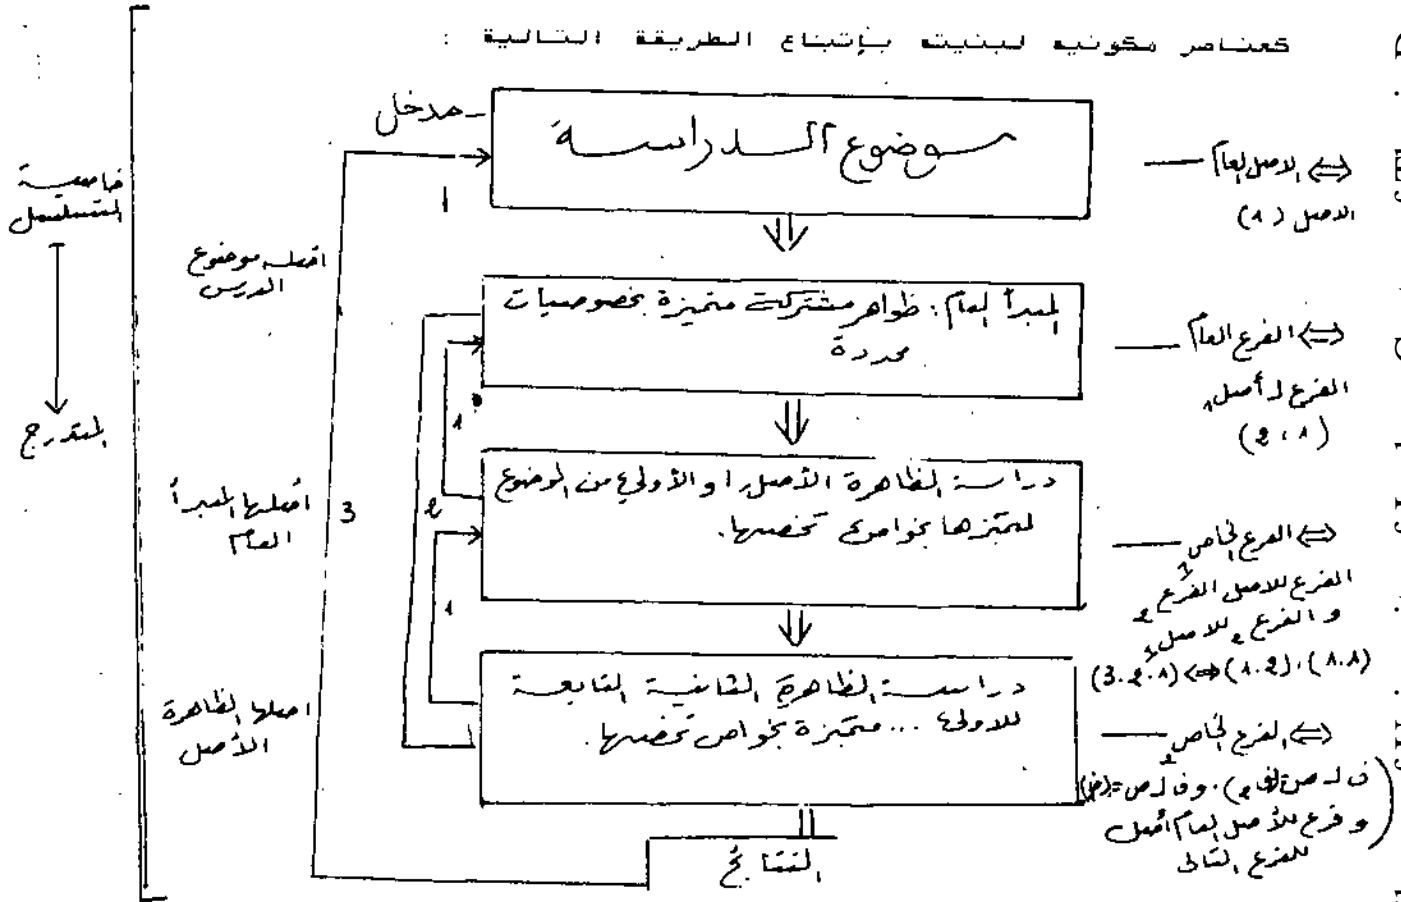 كعناصر مكونيه لبنيته بإتباع الطريقة التالية :
مدخل
موضوع الدراسة
⇔ الاصل العام
الاصل (1)
خاصية
التسلسل
المتدرج
1
اصله موضوع
الدرس
المبدأ العام : ظواهر مشتركة متميزة بخصوصيات
محددة
⇔ الفرع العام
الفرع لـ أصل 1
(2 . 1)
1
2
3
اصلها المبدأ
العام
دراسة الظاهرة الأصل او الأولى من الموضوع
لتميزها بخواص تخصها.
⇔ الفرع الخاص 1
الفرع للاصل الفرع 2
و الفرع 2 للاصل 1
(1.1) . (1.2) ⇔ (3.2.1)
1
اصلها الظاهرة
الأصل
دراسة الظاهرة الثانية التابعة
للاولى ... متميزة بخواص تخصها.
⇔ الفرع الخاص 2
و فرع للأصل العام أصل
للفرع التالي
النتائج